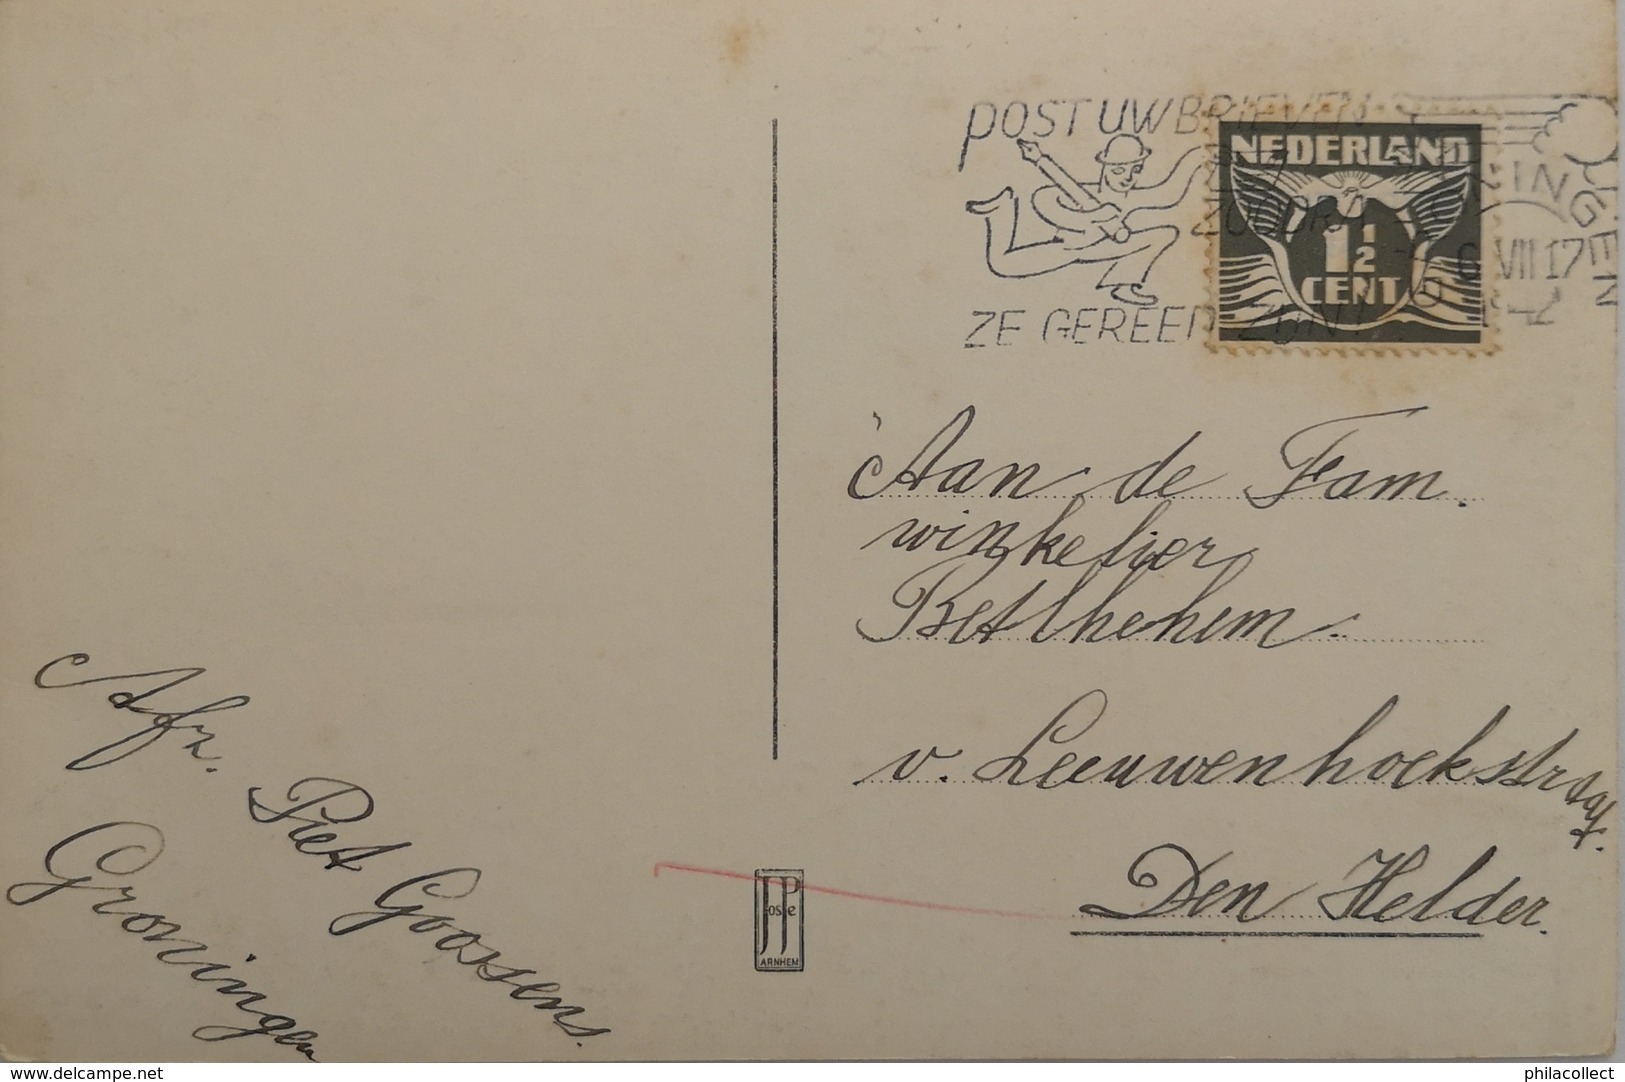 POST UW BRIEVEN
ZOODRA
ZE GEREED ZIJN
NEDERLAND
1½
CENT
GRONINGEN
VII 17
1942
Aan de Fam.
winkelier
Betlhehem.
v. Leeuwenhoekstraat.
Den Helder.
Afz.
Piet Goossens.
Groningen
JosPe
ARNHEM
www.delcampe.net
philacollect